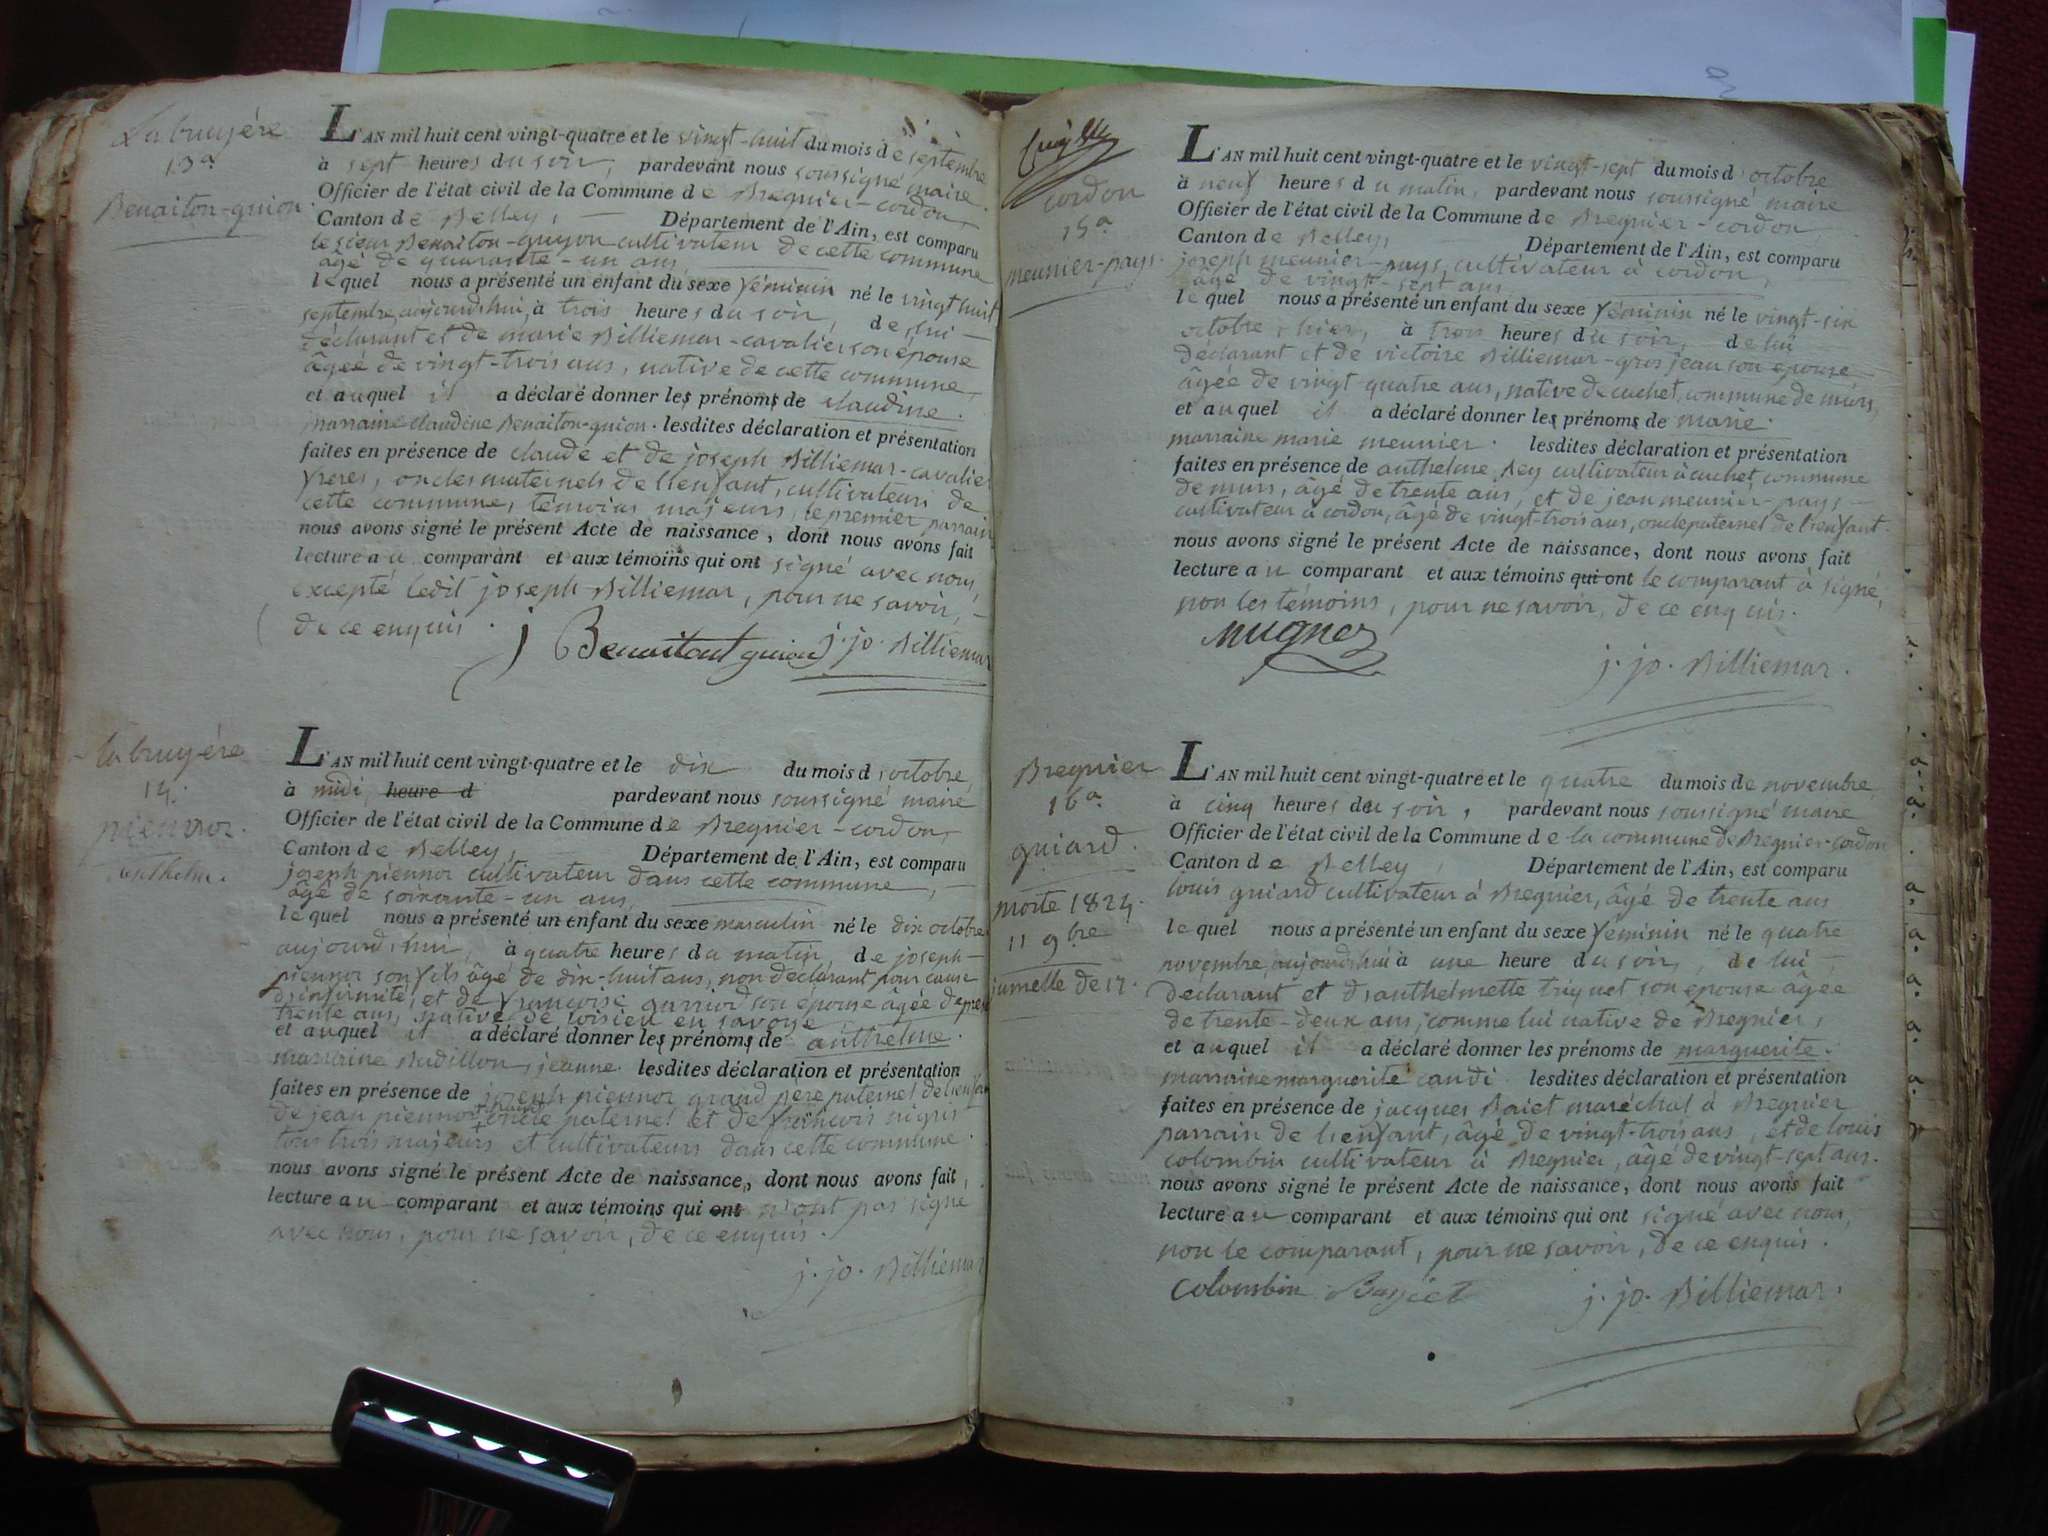 La bruyére
13.a
Benaiton-guion.
L'AN mil huit cent vingt-quatre et le vingt-huit du mois de septembre
à sept heures du soir, pardevant nous soussigné maire
Officier de l'état civil de la Commune de Bregnier-cordon
Canton de Belley, Département de l'Ain, est comparu
le sieur Benaiton-guyon cultivateur de cette commune
âgé de quarante-un ans
lequel nous a présenté un enfant du sexe féminin né le vingt huit
septembre, aujourd'hui, à trois heures du soir, de lui
déclarant et de marie Billiemar-cavalier son épouse
âgée de vingt-trois ans, native de cette commune,
et auquel il a déclaré donner les prénoms de claudine.
marraine claudine Benaiton-guion. lesdites déclaration et présentation
faites en présence de claude et de joseph Billiemar-cavalier
freres, oncles maternels de l'enfant, cultivateurs de
cette commune, témoins majeurs, le premier parrain
nous avons signé le présent Acte de naissance, dont nous avons fait
lecture au comparant et aux témoins qui ont signé avec nous,
excepté ledit joseph Billiemar, pour ne savoir,
de ce enquis.
j Benaitont guion j. jo. Billiemar
la bruyére
14.
piennoz.
anthelme.
L'AN mil huit cent vingt-quatre et le dix du mois d'octobre
à midi, heure d pardevant nous soussigné maire
Officier de l'état civil de la Commune de Bregnier-cordon,
Canton de Belley, Département de l'Ain, est comparu
joseph piennoz cultivateur dans cette commune,
âgé de soixante-un ans,
lequel nous a présenté un enfant du sexe masculin né le dix octobre
aujourd'hui, à quatre heures du matin, de joseph
piennoz son fils âgé de dix-huit ans, non déclarant pour cause
d'infirmité, et de françoise son epouse âgée de
trente ans, native de loisieu en savoye,
et auquel il a déclaré donner les prénoms de anthelme.
marraine Budillon, jeanne. lesdites déclaration et présentation
faites en présence de joseph piennoz grand père paternel de l'enfant
de jean piennoz grand oncle paternel et de françois
tous trois majeurs et cultivateurs dans cette commune.
nous avons signé le présent Acte de naissance, dont nous avons fait
lecture au comparant et aux témoins qui ont n'ont pas signé
avec nous, pour ne savoir, de ce enquis.
j. jo. Billiemar
cordon
15.a
meunier-pays.
L'AN mil huit cent vingt-quatre et le vingt-sept du mois d'octobre
à neuf heures du matin, pardevant nous soussigné maire
Officier de l'état civil de la Commune de Bregnier-cordon
Canton de Belley, Département de l'Ain, est comparu
joseph meunier-pays, cultivateur à cordon,
âgé de vingt-sept ans
lequel nous a présenté un enfant du sexe féminin né le vingt-six
octobre, hier, à trois heures du soir, de lui
déclarant et de victoire Billiemar-gros jean son epouse
âgée de vingt-quatre ans, native de cuchet, commune de murs,
et auquel il a déclaré donner les prénoms de marie.
marraine marie meunier. lesdites déclaration et présentation
faites en présence de anthelme Rey cultivateur à cuchet commune
de murs, âgé de trente ans, et de jean meunier-pays
cultivateur à cordon, âgé de vingt-trois ans, oncle paternel de l'enfant.
nous avons signé le présent Acte de naissance, dont nous avons fait
lecture au comparant et aux témoins qui ont le comparant à signé,
non les témoins, pour ne savoir, de ce enquis.
mugnez
j. jo. Billiemar.
Bregnier
16.a
guiard.
morte 1824.
11 9bre
jumelle de 17.
L'AN mil huit cent vingt-quatre et le quatre du mois de novembre
à cinq heures du soir, pardevant nous soussigné maire
Officier de l'état civil de la Commune de la commune de Bregnier-cordon
Canton de Belley, Département de l'Ain, est comparu
louis guiard cultivateur à Bregnier, âgé de trente ans
lequel nous a présenté un enfant du sexe féminin né le quatre
novembre, aujourd'hui à une heure du soir, de lui
déclarant et d'anthelmette triquet son epouse âgée
de trente-deux ans, comme lui native de Bregnier,
et auquel il a déclaré donner les prénoms de marguerite.
marraine marguerite candi lesdites déclaration et présentation
faites en présence de jacques Baiet maréchal à Bregnier
parrain de l'enfant, âgé de vingt-trois ans, et de louis
colombin cultivateur à Bregnier, âgé de vingt-sept ans.
nous avons signé le présent Acte de naissance, dont nous avons fait
lecture au comparant et aux témoins qui ont signé avec nous,
non le comparant, pour ne savoir, de ce enquis.
Colombin Bayiet j. jo. Billiemar.